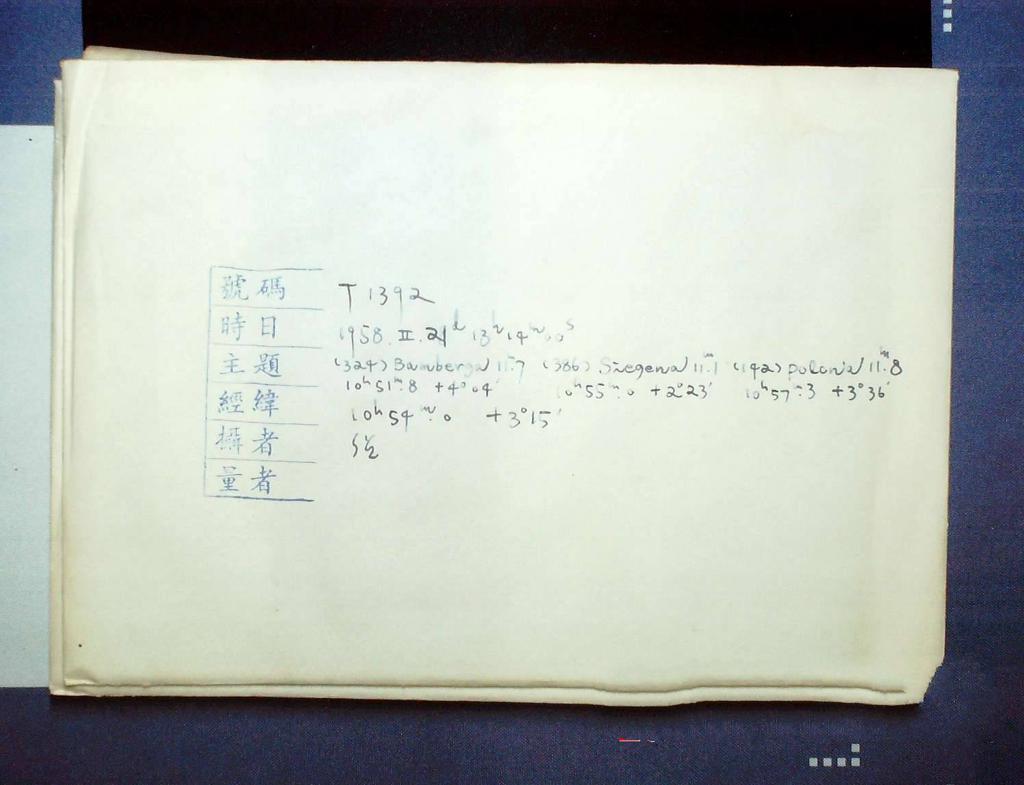 號碼 T 1392
時日 1958. II. 21ᵈ 13ʰ 14ᵐ.0 0ˢ
主題 (324) Bamberga 11ᵐ.7 (386) Siegena 11ᵐ.1 (142) Polonia 11ᵐ.8
10ʰ 51ᵐ.8 +4°04′ 10ʰ 55ᵐ.0 +2°23′ 10ʰ 57ᵐ.3 +3°36′
經緯 10ʰ 54ᵐ.0 +3°15′
攝者
量者